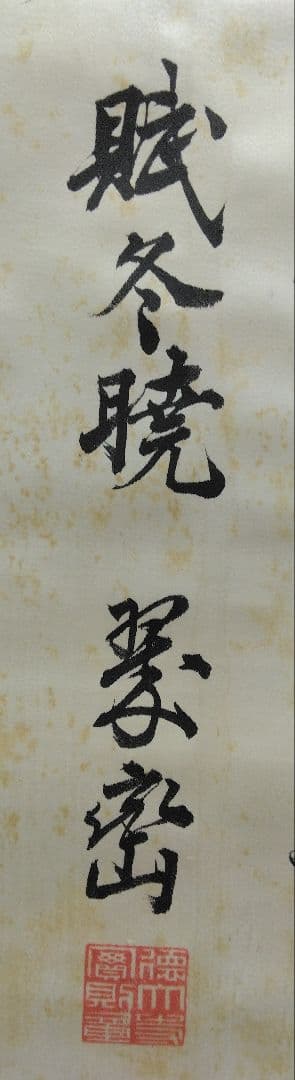 賦冬曉 翠巒